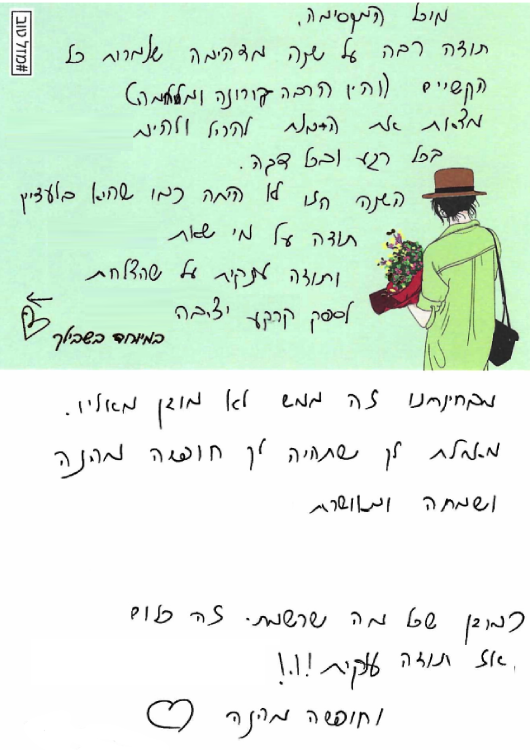 #מזל טוב
מיכל המקסימה,
תודה רבה על שנה מדהימה שלמרות כל
הקשיים (והיו הרבה קורונה ומלחמה)
מצאת את להכיל ולהיות
בכל רגע ובכל דקה.
השנה הזו לא היתה כמו שהיא בלעדיך
תודה על מי שאת
ותודה ענקית על שהצלחת
לספק קרקע יציבה
במיוחד בשבילך
מבחינתנו זה ממש לא מובן מאליו.
מאחלת לך שתהיה לך חופשה מהנה
ושמחה ומאושרת
כמובן שכל מה שרשמתי זה כלום
אז תודה ענקית !!!
וחופשה מהנה